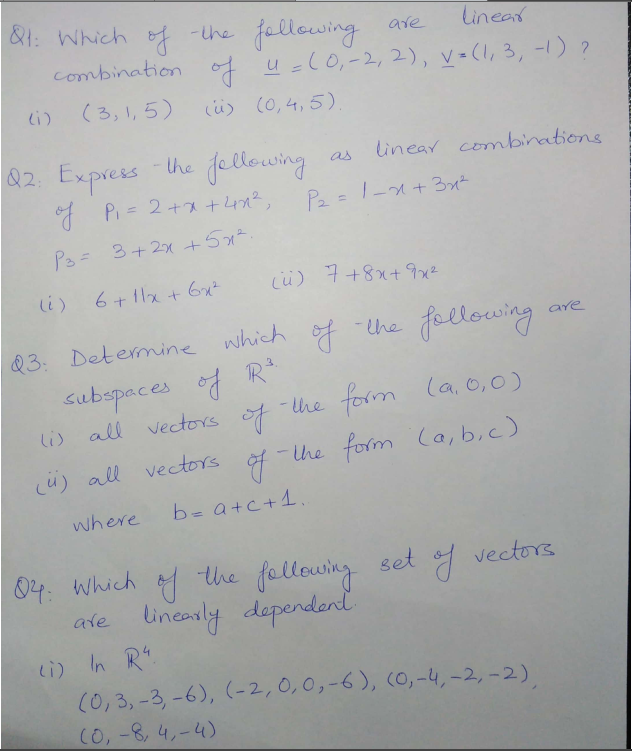 Q1: Which of the following are linear
combination of u = (0, -2, 2), v = (1, 3, -1) ?
(i) (3, 1, 5) (ii) (0, 4, 5).
Q2. Express the following as linear combinations
of P₁ = 2 + x + 4x², P₂ = 1 - x + 3x²
P₃ = 3 + 2x + 5x².
(i) 6 + 11x + 6x² (ii) 7 + 8x + 9x²
Q3: Determine which of the following are
subspaces of ℝ³.
(i) all vectors of the form (a, 0, 0)
(ii) all vectors of the form (a, b, c)
where b = a + c + 1.
Q4: Which of the following set of vectors
are linearly dependent.
(i) In ℝ⁴.
(0, 3, -3, -6), (-2, 0, 0, -6), (0, -4, -2, -2),
(0, -8, 4, -4)